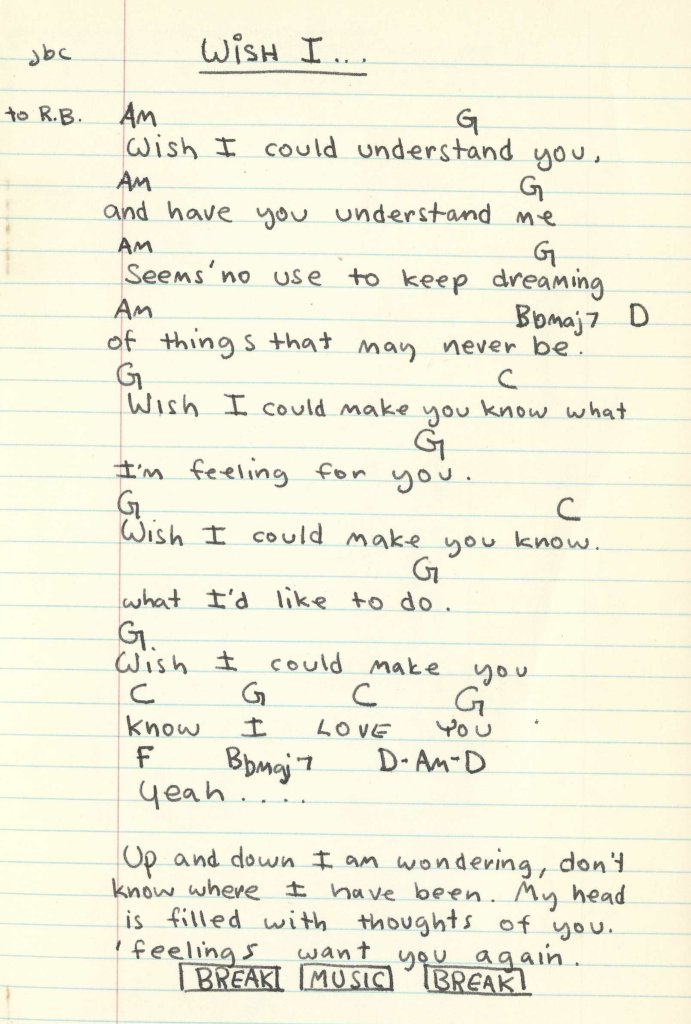 jbc WISH I...
to R.B. Am G
Wish I could understand you,
Am G
and have you understand me
Am G
Seems'no use to keep dreaming
Am Bbmaj7 D
of things that may never be.
G C
Wish I could make you know what
G
I'm feeling for you.
G C
Wish I could make you know.
G
what I'd like to do.
G.
Wish I could make you
C G C G
know I LOVE YOU
F Bbmaj7 D-Am-D
Yeah.....
Up and down I am wondering, don't
know where I have been. My head
is filled with thoughts of you.
'feelings want you again.
BREAK MUSIC BREAK